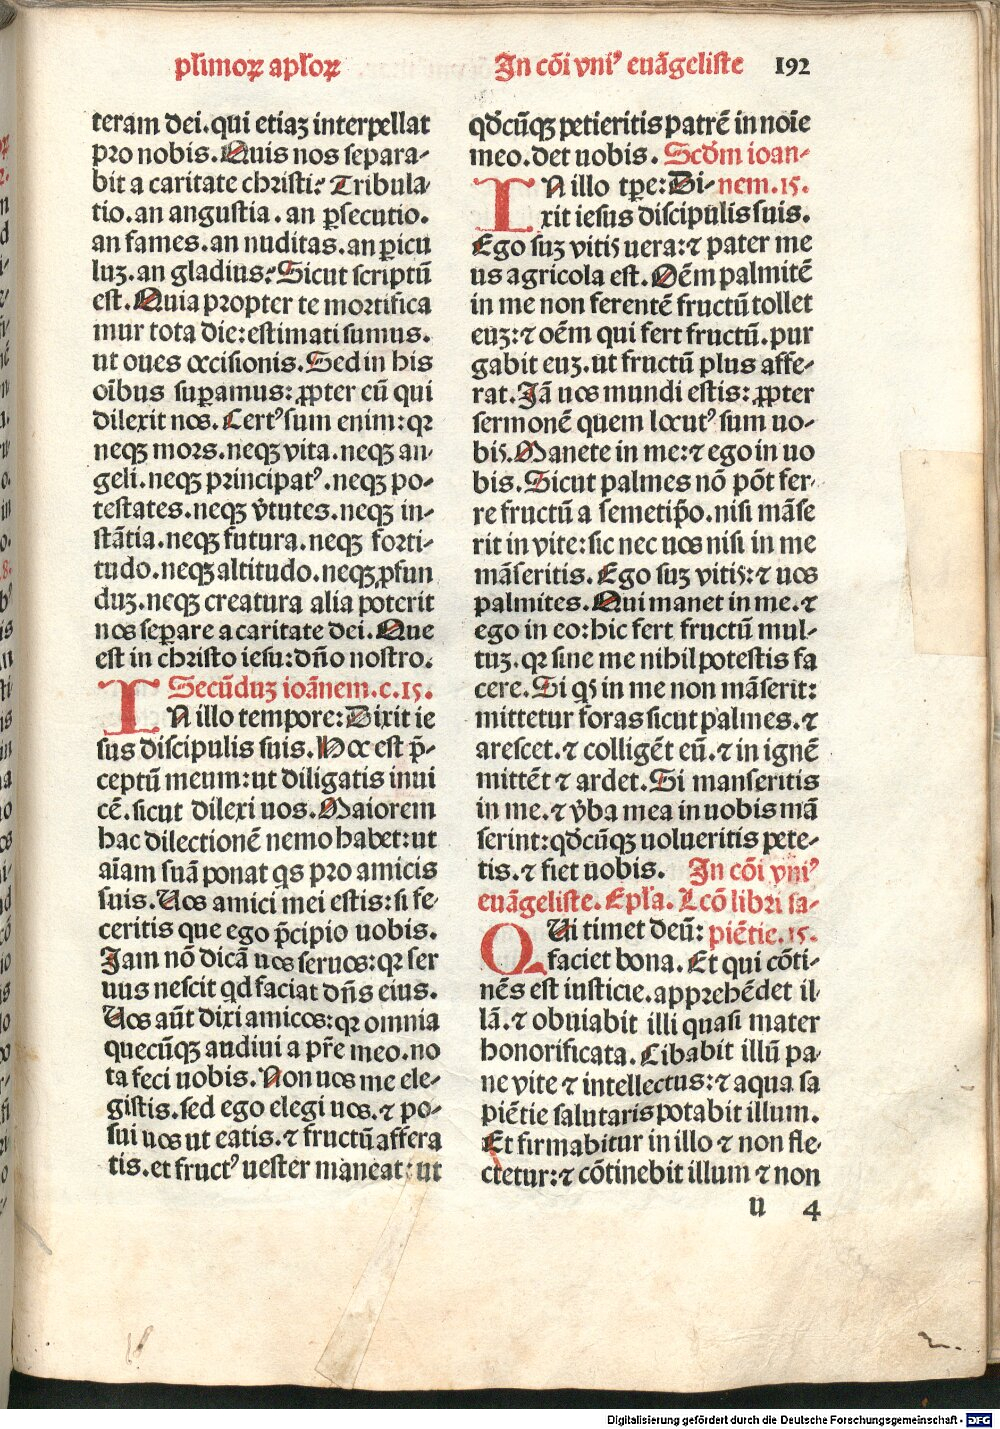 pl̃imoꝝ apl̃oꝝ In cõi vniꝰ euãgeliste 192
teram dei. qui etiaꝫ interpellat
pro nobis. Quis nos separa-
bit a caritate christi: Tribula-
tio. an angustia. an ꝑsecutio.
an fames. an nuditas. an ꝑicu
luꝫ. an gladius: Sicut scriptũ
est. Quia propter te mortifica
mur tota die: estimati sumus.
ut oues occisionis. Sed in his
oĩbus suꝑamus: ꝓpter eũ qui
dilexit nos. Certꝰ sum enim: qꝛ
neqꝫ mors. neqꝫ vita. neqꝫ an-
geli. neqꝫ principatꝰ. neqꝫ po-
testates. neqꝫ v̾tutes. neqꝫ in-
stãtia. neqꝫ futura. neqꝫ forti-
tudo. neqꝫ altitudo. neqꝫ ꝓfun
duꝫ. neqꝫ creatura alia poterit
nosseꝑare a caritate dei. Que
est in christo iesu: dño nostro.
Secũduꝫ ioãnem. c. 15.
IN illo tempore: Dixit ie
sus discipulis suis. Hoc est p̃-
ceptũ meum: ut diligatis inui
cẽ. sicut dilexi uos. Maiorem
hac dilectionẽ nemo habet: ut
aĩam suã ponat qs pro amicis
suis. Uos amici mei estis: si fe-
ceritis que ego p̃cipio uobis.
Jam nõ dicã uos seruos: qꝛ ser
uus nescit qd faciat dñs eius.
Uos aũt dixi amicos: qꝛ omnia
quecũqꝫ audiui a pr̃e meo. no
ta feci uobis. Non uos me ele-
gistis. sed ego elegi uos. ⁊ po-
sui uos ut eatis. ⁊ fructũ affera
tis. et fructꝰ uester maneat: ut
qd̾cũqꝫ petieritis patrẽ in noĩe
meo. det uobis. Scd̾m ioan-
IN illo tꝑe: Di- nem. 15.
xit iesus discipulis suis.
Ego suꝫ vitis uera: ⁊ pater me
us agricola est. Oẽm palmitẽ
in me non ferentẽ fructũ tollet
euꝫ: ⁊ oẽm qui fert fructũ. pur
gabit euꝫ. ut fructũ plus affe-
rat. Jã uos mundi estis: ꝓpter
sermonẽ quem locutꝰ sum uo-
bis. Manete in me: ⁊ ego in uo
bis. Sicut palmes nõ põt fer-
re fructũ a semetip̃o. nisi mãse
rit in vite: sic nec uos nisi in me
mãseritis. Ego suꝫ vitis: ⁊ uos
palmites. Qui manet in me. ⁊
ego in eo: hic fert fructũ mul-
tuꝫ. qꝛ sine me nihil potestis fa
cere. Si qs in me non mãserit:
mittetur foras sicut palmes. ⁊
arescet. ⁊ colligẽt eũ. ⁊ in ignẽ
mittẽt ⁊ ardet. Si manseritis
in me. ⁊ v̾ba mea in uobis mã
serint: qd̾cũqꝫ uolueritis pete-
tis. ⁊ fiet uobis. In cõi vniꝰ
euãgeliste. Epl̃a. Lcõ libri sa-
QUi timet deũ: piẽtie. 15.
faciet bona. Et qui cõti-
nẽs est iusticie. apprehẽdet il-
lã. ⁊ obuiabit illi quasi mater
honorificata. Cibabit illũ pa-
ne vite ⁊ intellectus: ⁊ aqua sa
piẽtie salutaris potabit illum.
Et firmabitur in illo ⁊ non fle-
ctetur: ⁊ cõtinebit illum ⁊ non
u 4
Digitalisierung gefördert durch die Deutsche Forschungsgemeinschaft - DFG